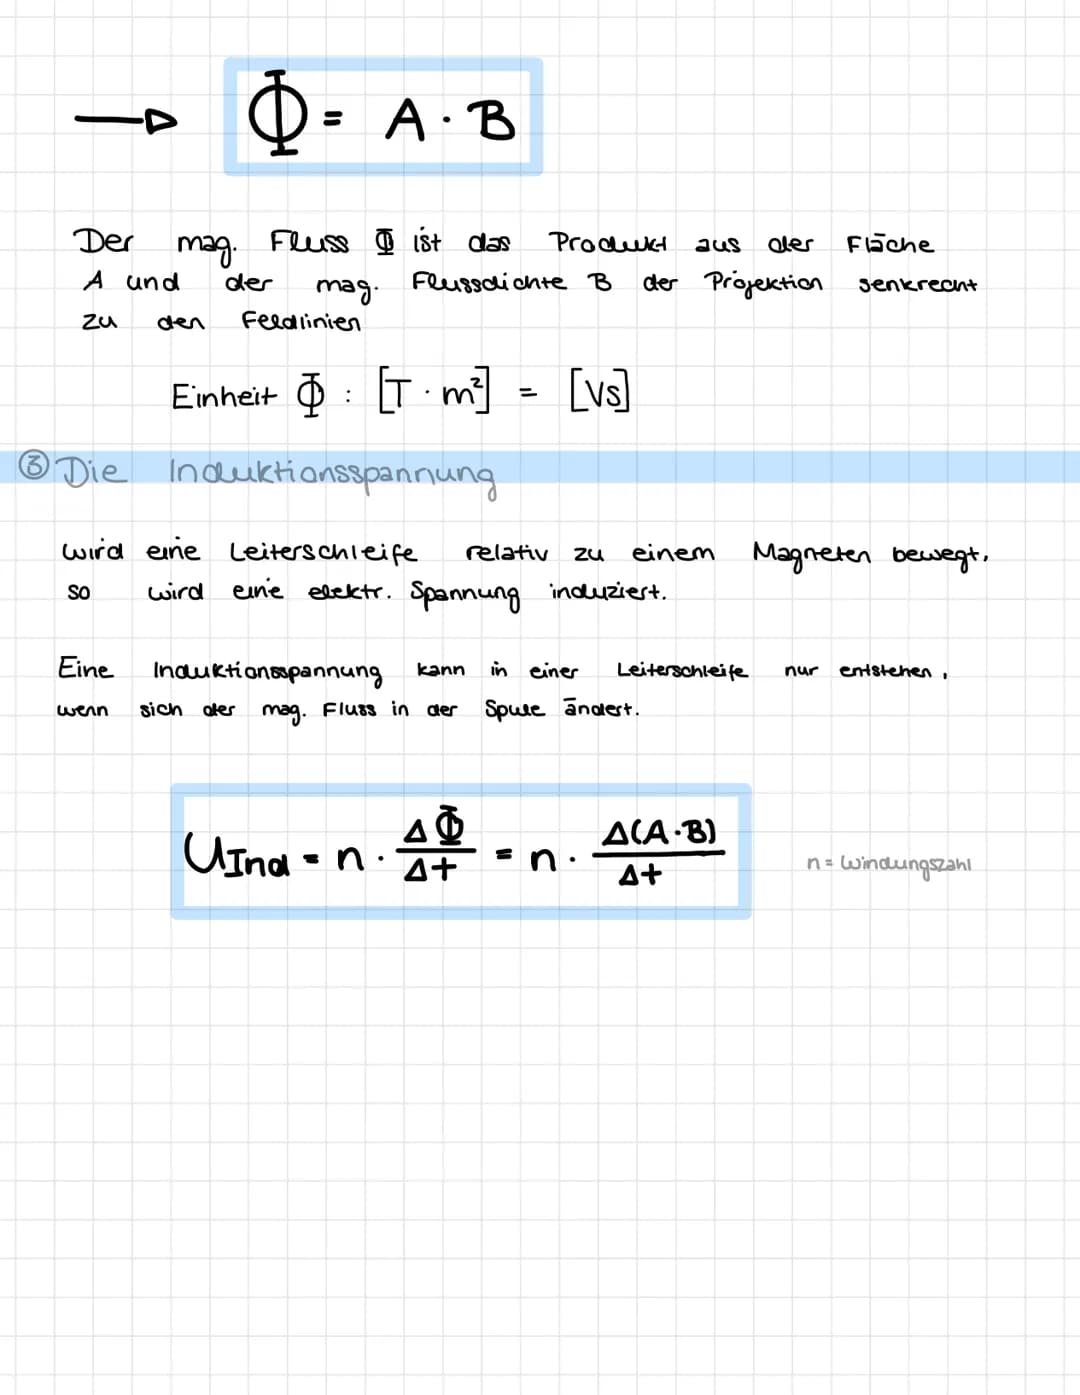 → Φ = A · B
Der mag. Fluss Φ ist das Produkt aus der Fläche
A und der mag. Flussdichte B der Projektion senkrecht
zu den Feldlinien
Einheit Φ : [T · m²] = [Vs]
③ Die Induktionsspannung
wird eine Leiterschleife relativ zu einem Magneten bewegt,
so wird eine elektr. Spannung induziert.
Eine Induktionsspannung kann in einer Leiterschleife nur entstehen,
wenn sich der mag. Fluss in der Spule ändert.
U_Ind = n · ΔΦ/Δt = n · Δ(A·B)/Δt n = Windungszahl